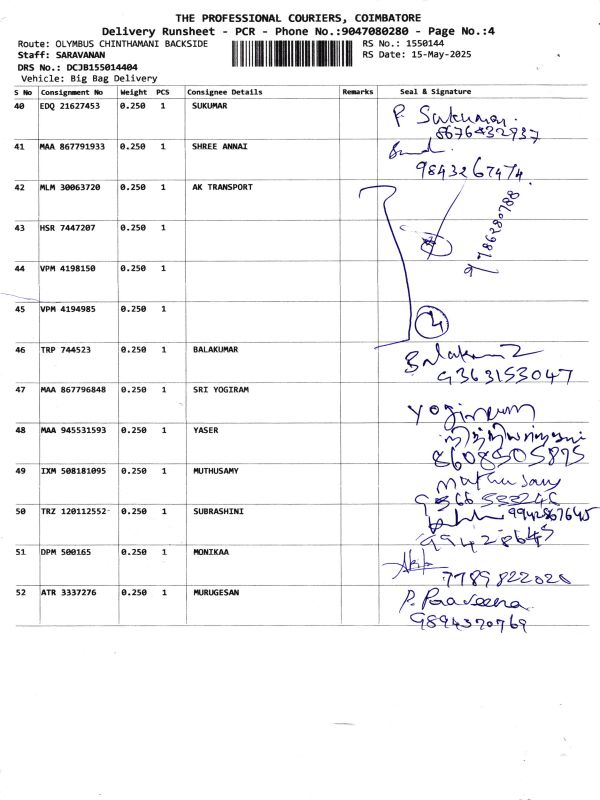 THE PROFESSIONAL COURIERS, COIMBATORE
Delivery Runsheet - PCR - Phone No.:9047080280 - Page No.:4
Route: OLYMBUS CHINTHAMANI BACKSIDE RS No.: 1550144
Staff: SARAVANAN RS Date: 15-May-2025
DRS No.: DCJB155014404
Vehicle: Big Bag Delivery
S No Consignment No Weight PCS Consignee Details Remarks Seal & Signature
40 EDQ 21627453 0.250 1 SUKUMAR P. Sukumar
8676432937
41 MAA 867791933 0.250 1 SHREE ANNAI
9843267474
42 MLM 30063720 0.250 1 AK TRANSPORT
9786280788
43 HSR 7447207 0.250 1
44 VPM 4198150 0.250 1
45 VPM 4194985 0.250 1
4
46 TRP 744523 0.250 1 BALAKUMAR Balakumar
9363153047
47 MAA 867796848 0.250 1 SRI YOGIRAM
Yogiram
48 MAA 945531593 0.250 1 YASER
8608505895
49 IXM 508181095 0.250 1 MUTHUSAMY Muthusamy
50 TRZ 120112552 0.250 1 SUBRASHINI 9942867645
51 DPM 500165 0.250 1 MONIKAA
7789822020
52 ATR 3337276 0.250 1 MURUGESAN P. Praveena
9894370769